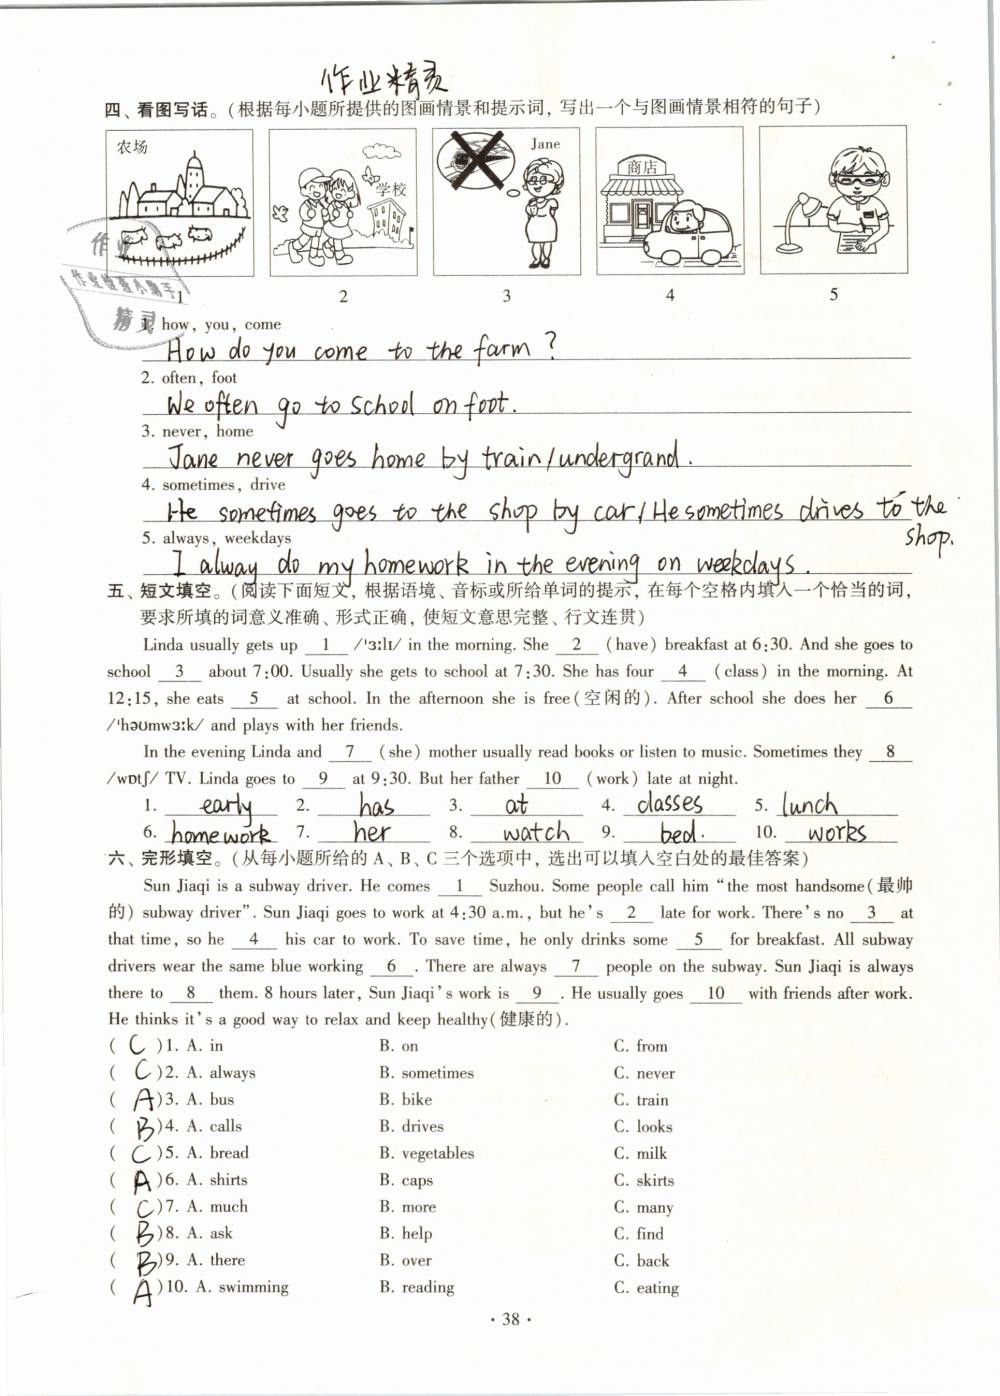 作业精灵
四、看图写话。(根据每小题所提供的图画情景和提示词，写出一个与图画情景相符的句子)
农场
学校
Jane
商店
1 2 3 4 5
作业
作业检查小助手
精灵
1. how, you, come
How do you come to the farm ?
2. often, foot
We often go to school on foot.
3. never, home
Jane never goes home by train/undergrand.
4. sometimes, drive
He sometimes goes to the shop by car/He sometimes drives to the shop.
5. always, weekdays
I alway do my homework in the evening on weekdays.
五、短文填空。(阅读下面短文，根据语境、音标或所给单词的提示，在每个空格内填入一个恰当的词，
要求所填的词意义准确、形式正确，使短文意思完整、行文连贯)
Linda usually gets up 1 /'ɜːlɪ/ in the morning. She 2 (have) breakfast at 6:30. And she goes to
school 3 about 7:00. Usually she gets to school at 7:30. She has four 4 (class) in the morning. At
12:15, she eats 5 at school. In the afternoon she is free(空闲的). After school she does her 6
/'həʊmwɜːk/ and plays with her friends.
In the evening Linda and 7 (she) mother usually read books or listen to music. Sometimes they 8
/wɒtʃ/ TV. Linda goes to 9 at 9:30. But her father 10 (work) late at night.
1. early 2. has 3. at 4. classes 5. lunch
6. homework 7. her 8. watch 9. bed. 10. works
六、完形填空。(从每小题所给的 A、B、C 三个选项中，选出可以填入空白处的最佳答案)
Sun Jiaqi is a subway driver. He comes 1 Suzhou. Some people call him “the most handsome(最帅
的) subway driver”. Sun Jiaqi goes to work at 4:30 a.m., but he’s 2 late for work. There’s no 3 at
that time, so he 4 his car to work. To save time, he only drinks some 5 for breakfast. All subway
drivers wear the same blue working 6 . There are always 7 people on the subway. Sun Jiaqi is always
there to 8 them. 8 hours later, Sun Jiaqi’s work is 9 . He usually goes 10 with friends after work.
He thinks it’s a good way to relax and keep healthy(健康的).
( C )1. A. in B. on C. from
( C )2. A. always B. sometimes C. never
( A )3. A. bus B. bike C. train
( B )4. A. calls B. drives C. looks
( C )5. A. bread B. vegetables C. milk
( A )6. A. shirts B. caps C. skirts
( C )7. A. much B. more C. many
( B )8. A. ask B. help C. find
( B )9. A. there B. over C. back
( A )10. A. swimming B. reading C. eating
· 38 ·